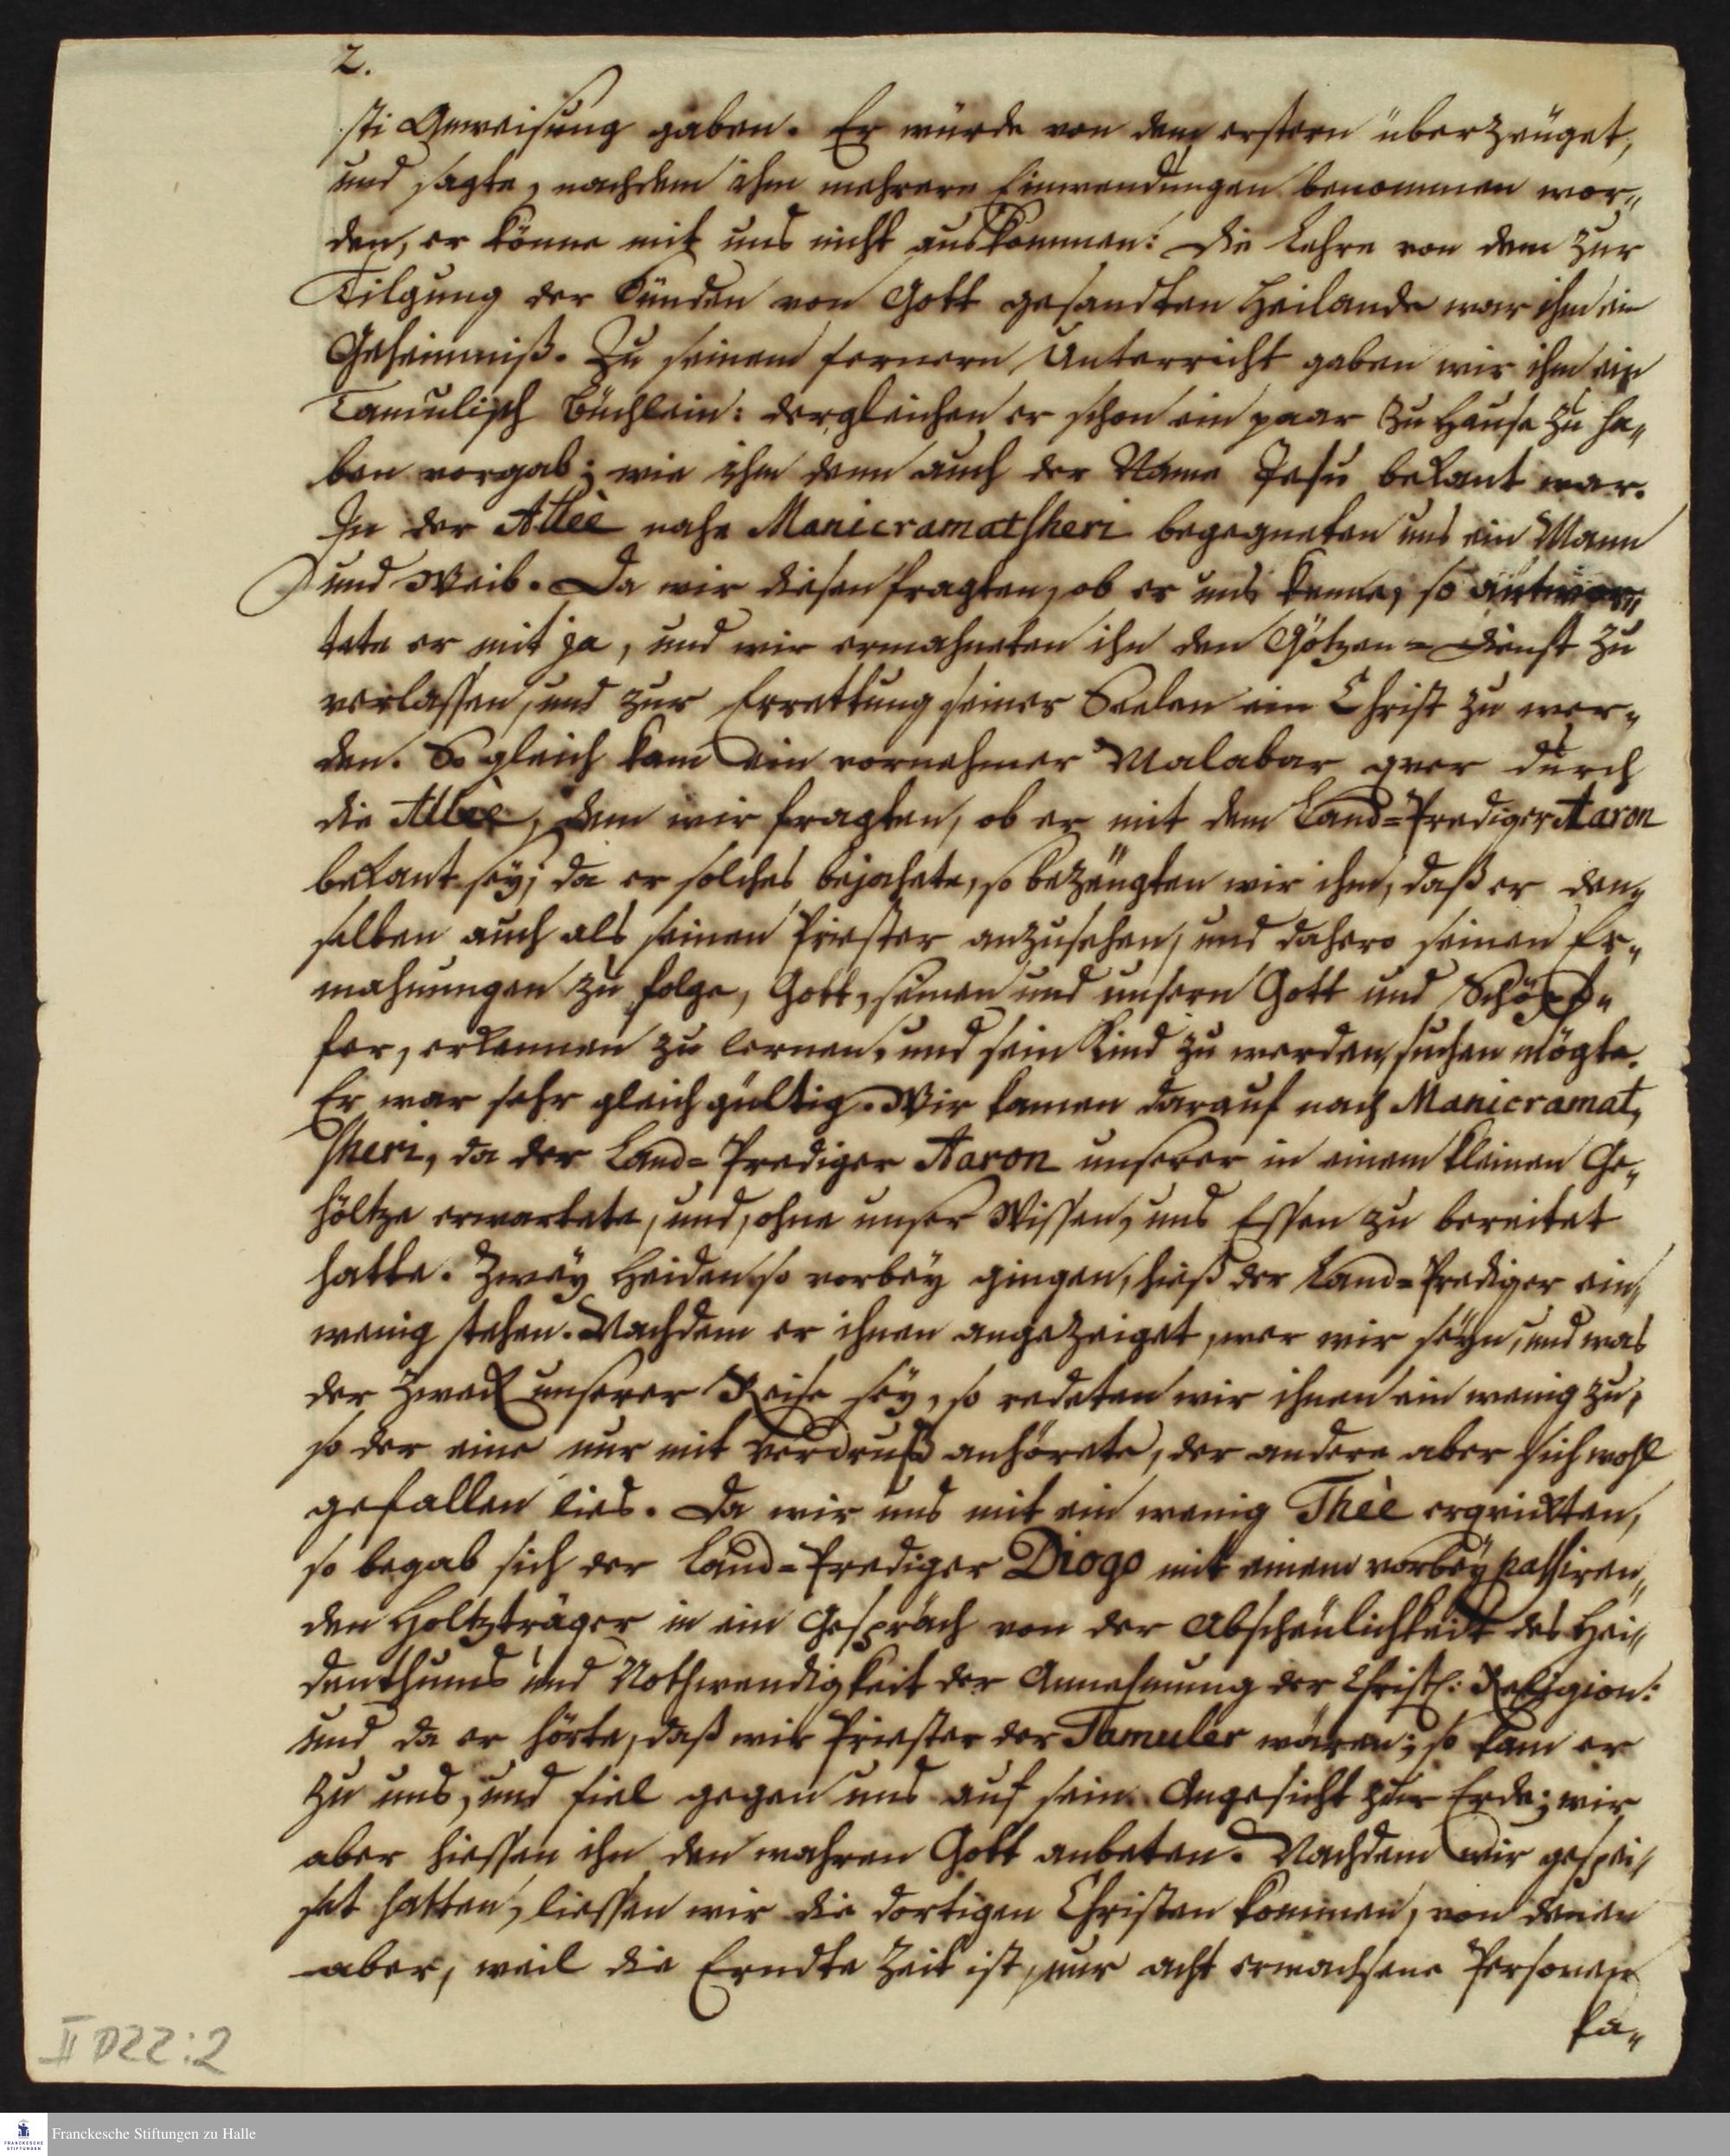 2.
sti Anweisung gaben. Er wurde von dem erstern überzeuget,
und sagte, nachdem ihm mehrere Einwendungen benommen wor„
den, er könne mit uns nicht auskommen: die Lehre von dem zur
Tilgung der Sünden von Gott gesandten Heilande war ihm ein
Geheimniß. Zu seinem fernern Unterricht gaben wir ihm ein
Tamulisch Büchlein: dergleichen er schon ein paar zu Hause zu ha„
ben vorgab; wie ihm denn auch der Name Jesu bekant war.
In der Alleè nahe Manicramatsheri begegneten uns ein Mann
und Weib. Da wir diesen fragten, ob er uns kenne, so antwor„
tete er mit ja, und wir ermahneten ihn den Götzen-Dienst zu
verlassen, und zur Errettung seiner Seelen ein Christ zu wer„
den. So gleich kam ein vornehmer Malabar qver durch
die Alleè, dem wir fragten, ob er mit dem Land-Prediger Aaron
bekant sey; da er solches bejahete, so bezeugten wir ihm, daß er den„
selben auch als seinen Priester anzusehen, und dahero seinen Er„
mahnungen zu folge, Gott, seinen und unsern Gott und Schöpf„
fer, erkennen zu lernen, und sein Kind zu werden, suchen mögte.
Er war sehr gleichgültig. Wir kamen darauf nach Manicramat„
sheri, da der Land-Prediger Aaron unserer in einem kleinen Ge„
höltze erwartete, und, ohne unser Wissen, uns Essen zu bereitet
hatte. Zwey Heiden so vorbey gingen, hieß der Land-Prediger ein
wenig stehen. Nachdem er ihnen angezeiget, wer wir seyn, und was
der Zweck unserer Reise sey, so redeten wir ihnen ein wenig zu,
so der eine nur mit Verdruß anhörete, der andere aber sich wohl
gefallen lies. Da wir uns mit ein wenig Theè erqvickten,
so begab sich der Land-Prediger Diogo mit einem vorbey passiren„
den Holtzträger in ein Gespräch von der Abscheulichkeit des Hei„
denthums und Nothwendigkeit der Annehmung der Christl: Religion:
und da er hörte, daß wir Priester der Tamuler wären; so kam er
zu uns, und fiel gegen uns auf sein Angesicht zur Erde; wir
aber hiessen ihn den wahren Gott anbeten. Nachdem wir gespei„
set hatten, liessen wir die dortigen Christen kommen, von denen
aber, weil die Erndte Zeit ist, nur acht erwachsene Personen
ka„
II D22:2
Franckesche Stiftungen zu Halle